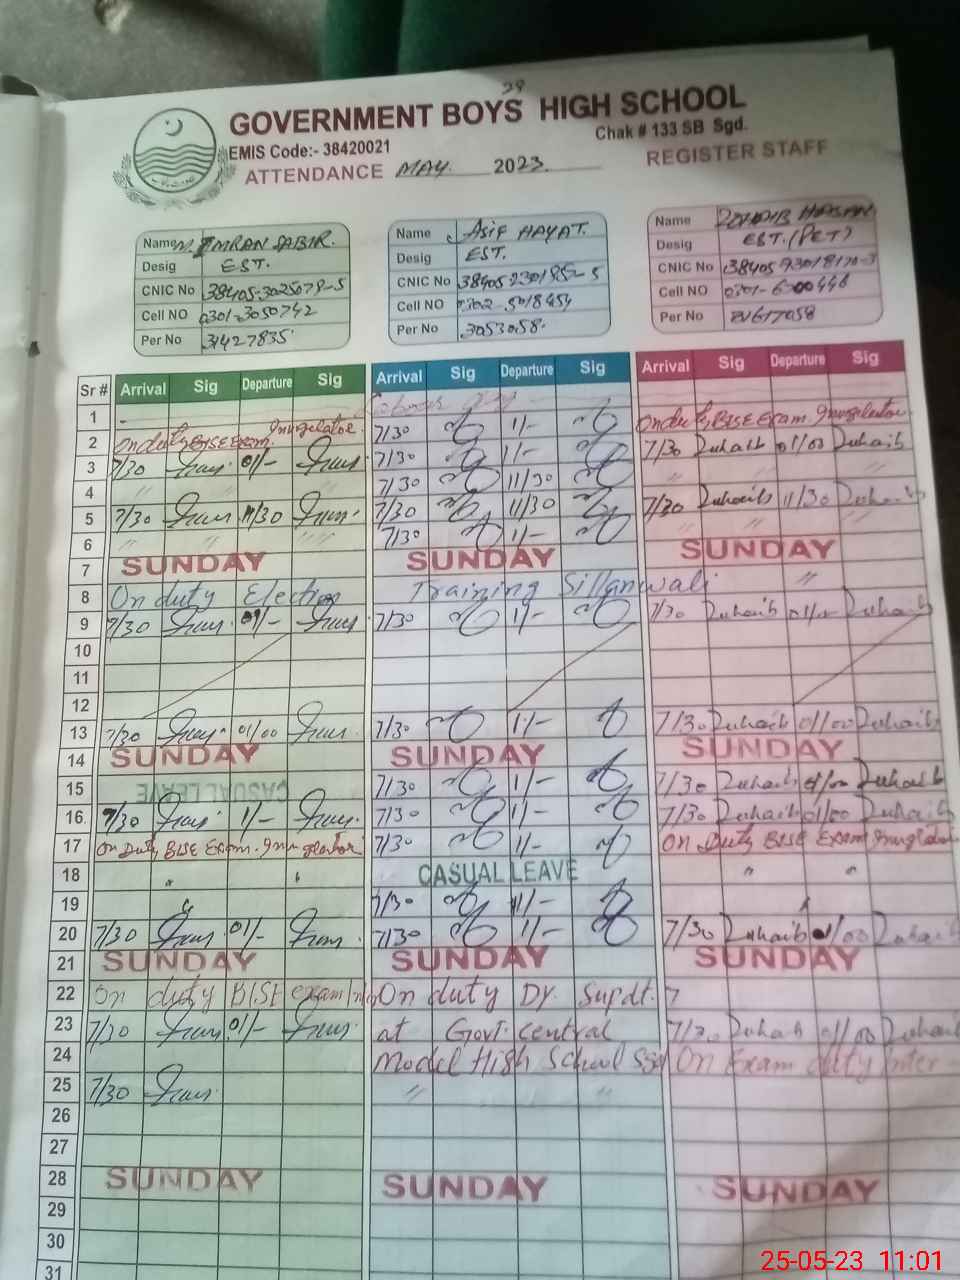 29
GOVERNMENT BOYS HIGH SCHOOL
Chak # 133 SB Sgd.
EMIS Code:- 38420021
ATTENDANCE MAY. 2023. REGISTER STAFF
Name M. IMRAN SABIR.
Desig EST.
CNIC No 38405-3025079-5
Cell NO 0301-3050742
Per No 31427835
Name Asif HAYAT.
Desig EST.
CNIC No
Cell NO 0302-5018454
Per No 3053058
Name HASAN
Desig EST. (PET)
CNIC No
Cell NO
Per No
Sr # Arrival Sig Departure Sig Arrival Sig Departure Sig Arrival Sig Departure Sig
1
2 On duty BISE Exam. Invigilator 7/30 1/- On duty BISE Exam Invigilator
3 7/30 01/- 7/30 1/- 7/30 Zuhaib 01/00 Zuhaib
4 " " 7/30 11/30 " "
5 7/30 11/30 7/30 11/30 7/30 Zuhaib 11/30 Zuhaib
6 " " 7/30 1/- " "
7 SUNDAY SUNDAY SUNDAY
8 On duty Election Training Sillanwali "
9 7/30 01/- 7/30 1/- 7/30 Zuhaib 01/00 Zuhaib
10
11
12
13 7/30 01/00 7/30 1/- 7/30 Zuhaib 01/00 Zuhaib
14 SUNDAY SUNDAY SUNDAY
15 CASUAL LEAVE 7/30 1/- 7/30 Zuhaib 01/00 Zuhaib
16 7/30 1/- 7/30 1/- 7/30 Zuhaib 01/00 Zuhaib
17 On Duty BISE Exam. Invigilator 7/30 1/- On Duty BISE Exam Invigilator
18 " " CASUAL LEAVE " "
19 " 7/30 1/-
20 7/30 01/- 7/30 1/- 7/30 Zuhaib 01/00 Zuhaib
21 SUNDAY SUNDAY SUNDAY
22 On duty BISE exam On duty Dy. Supdt.
23 7/30 01/- at Govt. central 7/30 Zuhaib 01/00 Zuhaib
24 Model High School Sgd On Exam duty Inter
25 7/30 " "
26
27
28 SUNDAY SUNDAY SUNDAY
29
30
31
25-05-23 11:01